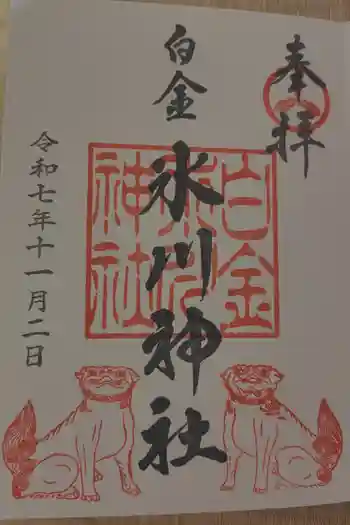 奉拝
白金
氷川神社
白金
氷川
神社
令和七年十一月二日